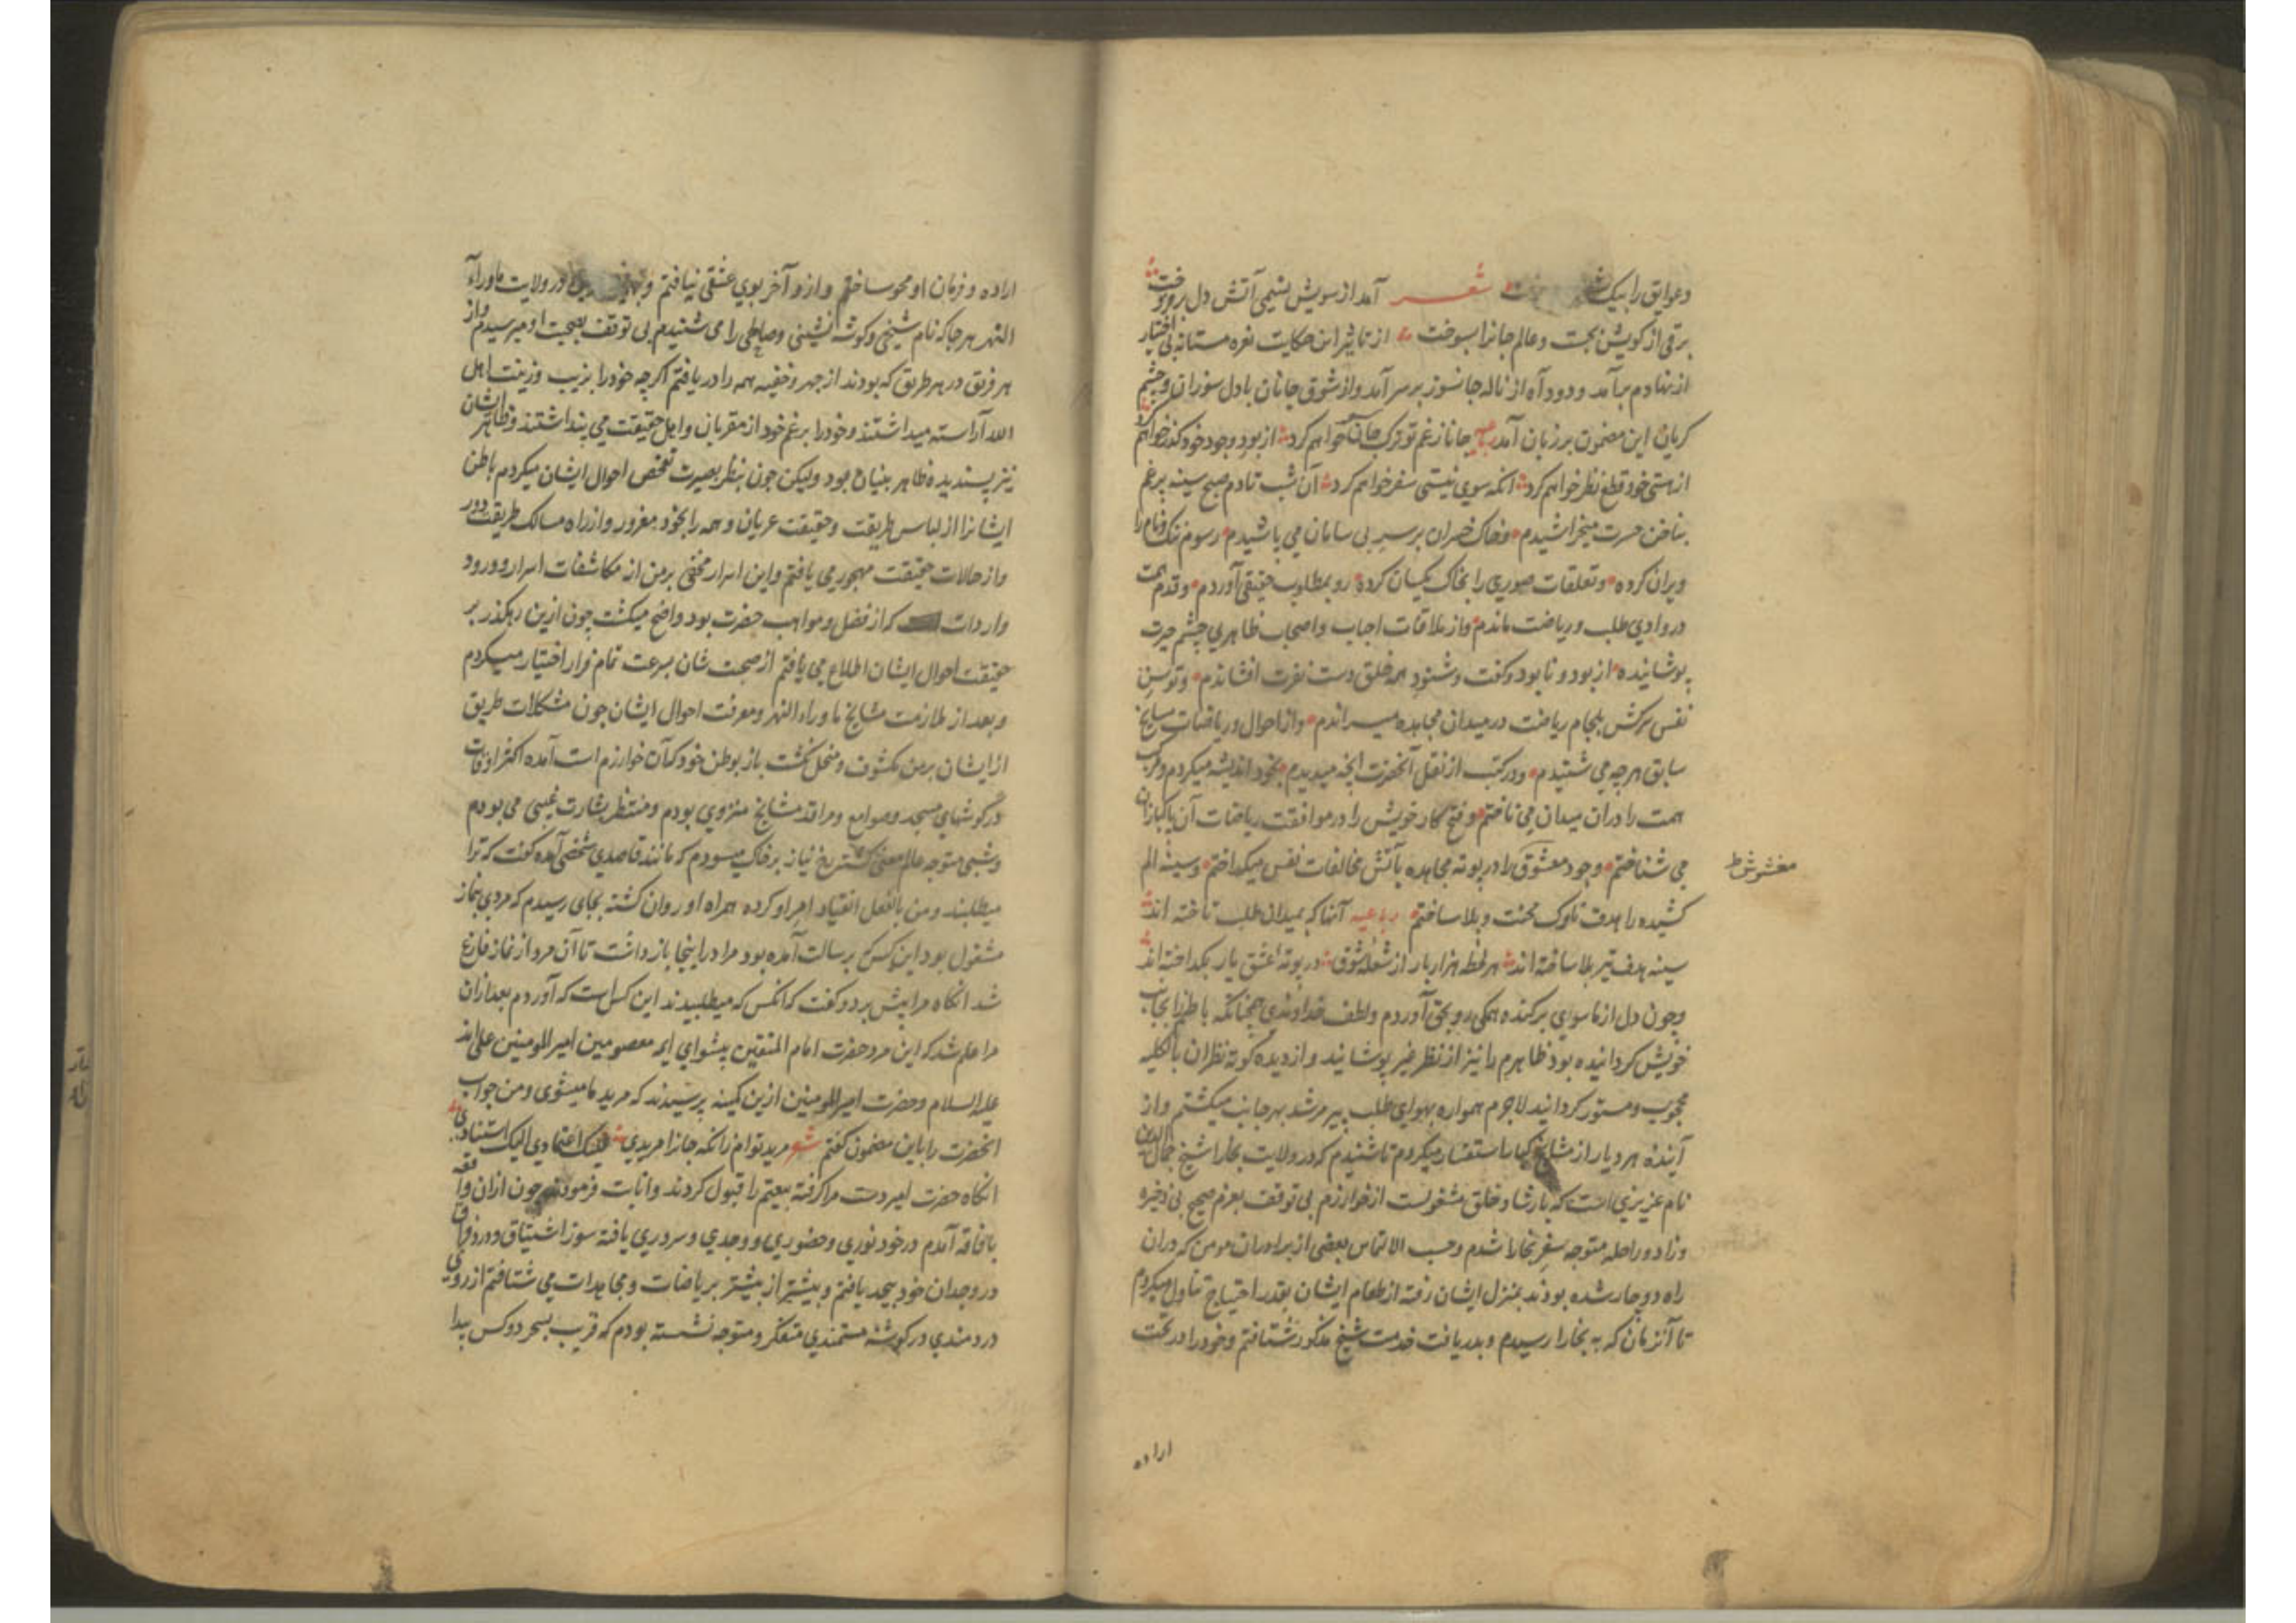 وعوایق را بیک شعر آمد از سویش نسیمی آتش دل بر فروخت
برقی از کویش بجست و عالم جانرا بسوخت از تاثیر این حکایت نعره مستانه بی اختیار
از نهادم برآمد و دود آه از ناله جانسوز برسر آمد و از شوق جانان با دل سوزان و چشم
کریان این مضمون برزبان آمد رباعیه جانا زغم تو ترک جان خواهم کرد از بود وجود خود کذر خواهم کرد
از هستی خود قطع نظر خواهم کرد انکه سوی نیستی سفر خواهم کرد آن شب تا دم صبح سینه پرغم
بناخن حسرت میخراشیدم و خاک خسران برسر بی سامان می پاشیدم و رسوم ننک و نام را
ویران کرده و تعلقات صوری را بخاک یکسان کرده رو بمطلوب حقیقی آوردم و قدم همت
در وادی طلب و ریاضت ماندم و از ملاقات احباب و اصحاب ظاهری چشم حیرت
پوشانیده از بود و نابود و کفت و شنود همه خلق دست نفرت افشاندم و توسن
نفس سرکش بلجام ریاضت در میدان مجاهده میراندم و از احوال و ریاضات مشایخ
سابق هرچه می شنیدم و در کتب از نقل آنحضرت انچه میدیدم بخود اندیشه میکردم و مرکب
همت را دران میدان می تاختم و فتح کار خویش را در موافقت ریاضات آن پاکبازان
می شناختم و وجود معشوق را در بوته مجاهده بآتش مخالفات نفس میکداختم و سینه الم
مغشوش ط
کشیده را هدف ناوک محنت و بلا ساختم رباعیه آنها که بمیدان طلب تاخته اند
سینه هدف تیر بلا ساخته اند هر لحظه هزار بار از شعله شوق در بوته عشق یار بکداخته اند
وچون دل از ماسوای برکنده همکی رو بحق آوردم ولطف خداوندی همچنانکه باطنم را بجانب
خویش کردانیده بود ظاهرم را نیز از نظر غیر پوشانید و از دیده کوته نظران بالکلیه
محجوب و مستور کردانید لاجرم همواره بهوای طلب پیر مرشد بهر جانب میکشتم و از
آینده هر دیار از مشایخ کبار استفسار میکردم تا شنیدم که در ولایت بخارا شیخ جمال الدین
نام عزیزی است که بارشاد خلق مشغولست از خوارزم بی توقف بعزم صحیح بی ذخیره
وزاد و راحله متوجه سفر بخارا شدم و حسب الالتماس بعضی از برادران مومن که دران
راه دوچار شده بودند بمنزل ایشان رفته از طعام ایشان بقدر احتیاج تناول میکردم
تا آنزمان که به بخارا رسیدم و بدریافت خدمت شیخ مذکور شتافتم وخود را در تحت
اراده
اراده و فرمان او محو ساختم و ازو آخر بوی عشقی نیافتم و در ولایت ماوراء
النهر هرجا که نام شیخی و کوشه نشینی و صالحی را می شنیدم بی توقف بصحبت او میرسیدم و از
هر فریق در هر طریق که بودند از جهر و خفیه همه را دریافتم اکرچه خود را بزیب وزینت اهل
الله آراسته میداشتند و خود را برغم خود از مقربان و اهل حقیقت می پنداشتند وظاهر ایشان
نیز پسندیده ظاهر بینان بود ولیکن چون بنظر بصیرت تفحص احوال ایشان میکردم باطن
ایشانرا از لباس طریقت و حقیقت عریان و همه را بخود مغرور و از راه مسالک طریقت دور
و از حالات حقیقت مهجور می یافتم و این اسرار مخفی بر من از مکاشفات اسرار و ورود
واردات که از فضل و مواهب حضرت بود واضح میکشت چون ازین رهکذر بر
حقیقت احوال ایشان اطلاع می یافتم از صحبت شان بسرعت تمام فرار اختیار میکردم
و بعد از ملازمت مشایخ ماوراء النهر و معرفت احوال ایشان چون مشکلات طریق
از ایشان بر من مکشوف و منحل نکشت باز بوطن خود که آن خوارزم است آمده اکثر اوقات
در کوشهای مسجد و صوامع و مراقد مشایخ منزوی بودم و منتظر بشارت غیبی می بودم
و شبی متوجه عالم معنی کشته رخ نیاز بر خاک میسودم که مانند قاصدی شخصی آمده کفت که ترا
میطلبند و من بالفعل انقیاد امر او کرده همراه او روان کشته بجای رسیدم که مردی بنماز
مشغول بود این کس که برسالت آمده بود مرا در اینجا باز داشت تا آن مرد از نماز فارغ
شد انکاه مرا پیش برد و کفت که انکس که میطلبیدند این کس است که آوردم بعد ازان
مرا علم شد که این مرد حضرت امام المتقین پیشوای ایمه معصومین امیر المومنین علی اند
علیه السلام و حضرت امیر المومنین ازین کمینه پرسیدند که مرید ما میشوی و من جواب
انحضرت را باین مضمون کفتم شعر مرید توام زانکه جانرا مریدی علیک اعتمادی الیک استنادی
انکاه حضرت امیر دست مرا کرفته بیعتم را قبول کردند و انابت فرمودند چون ازان واقعه
بافاقه آمدم در خود نوری و حضوری و وجدی و سروری یافته سوز اشتیاق و درد فراق
در وجدان خود بیحد یافتم و بیشتر از پیشتر بریاضات و مجاهدات می شتافتم از روی
دردمندی در کوشه مستمندی متفکر و متوجه نشسته بودم که قریب بسحر دو کس پیدا